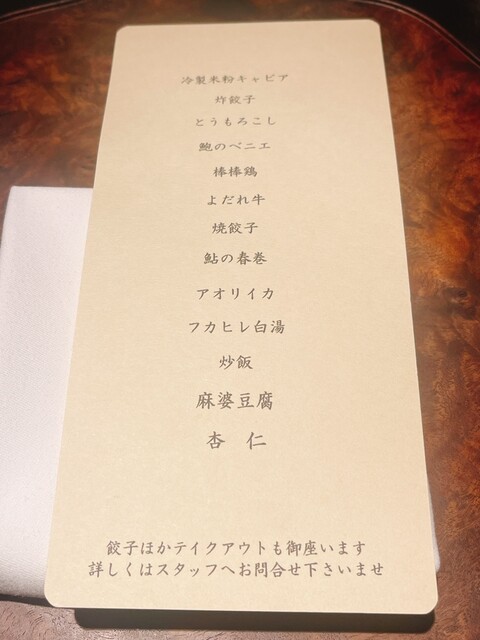 冷製米粉キャビア
炸餃子
とうもろこし
鮑のベニエ
棒棒鶏
よだれ牛
焼餃子
鮎の春巻
アオリイカ
フカヒレ白湯
炒飯
麻婆豆腐
杏 仁
餃子ほかテイクアウトも御座います
詳しくはスタッフへお問合せ下さいませ